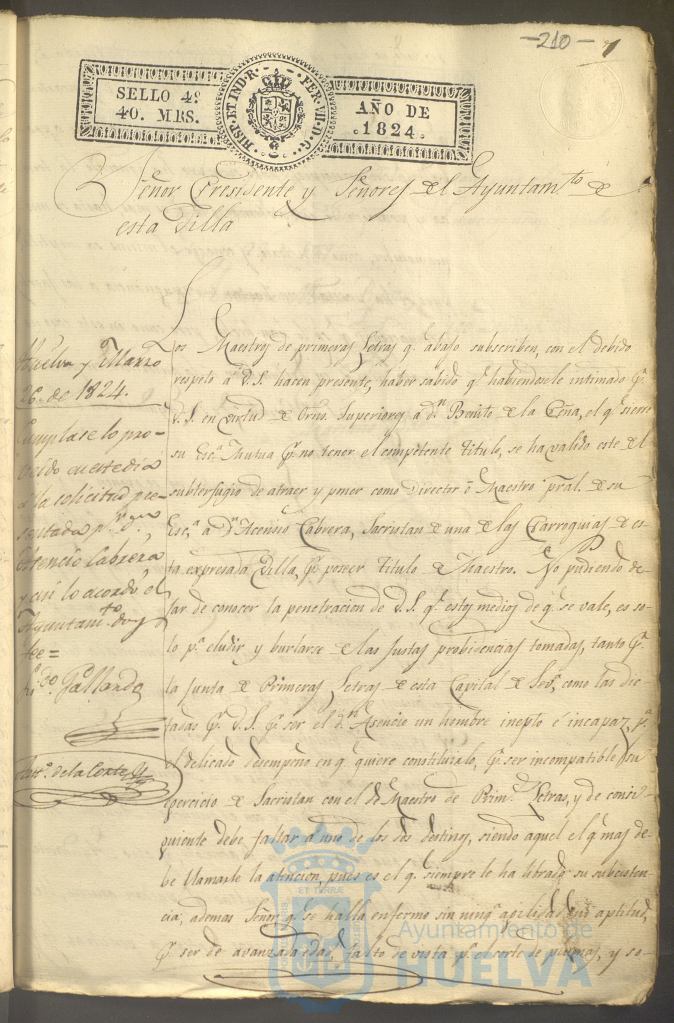 -210-
SELLO 4º
40. MRS.
HISP. ET IND. R. FER. VII. D. G.
AÑO DE
1824.
Señor Presidente y Señores del Ayuntamto de
esta Villa
Los Maestros de primeras Letras q.e abajo subscriben, con el debido
respeto a V.S. hacen presente, haber sabido q.e habiendosele intimado p.r
V.S. en virtud de Orns. Superiores a D.n Benito de la Cena, el q.e cierre
su Esc.a Mutua p.r no tener el competente titulo, se ha valido este del
subterfugio de atraer y poner como Director ó Maestro pral. de su
Esc.a a D.n Acensio Cabrera, Sacristan de una de las Parroquias de es-
ta expresada Villa, p.r poseer Titulo de Maestro. No pudiendo de-
jar de conocer la penetracion de V.S. q.e estos medios de q.e se vale, es so-
lo p.a eludir y burlarse de las justas probidencias tomadas, tanto p.r
la Junta de Primeras Letras de esta Capital de Sev.a, como las dic-
tadas p.r V.S. p.r ser el D.n Asencio un hombre inepto é incapaz, p.a
el delicado desempeño en q.e quiere constituirlo, p.r ser incompatible su
egercicio de Sacristan con el de Maestro de Prim.s Letras, y de consi-
guiente debe faltar a uno de los dos destinos, siendo aquel el q.e mas de-
be llamarle la atencion, pues es el q.e siempre le ha librado su subcisten-
cia, ademas Señor q.e se halla enfermo sin ning.a agilidad ni aptitud,
p.r ser de avanzada edad, falto de vista p.a el corte de plumas, y so-
Huelva y Marzo
26. de 1824.
Cumplase lo pro-
veido en este dia
a la solicitud pre-
sentada p.r
Asencio Cabrera
y asi lo acordó el
Ayuntamto. doy
fee=
Gallardo
de la Corte
Ayuntamiento de
HUELVA